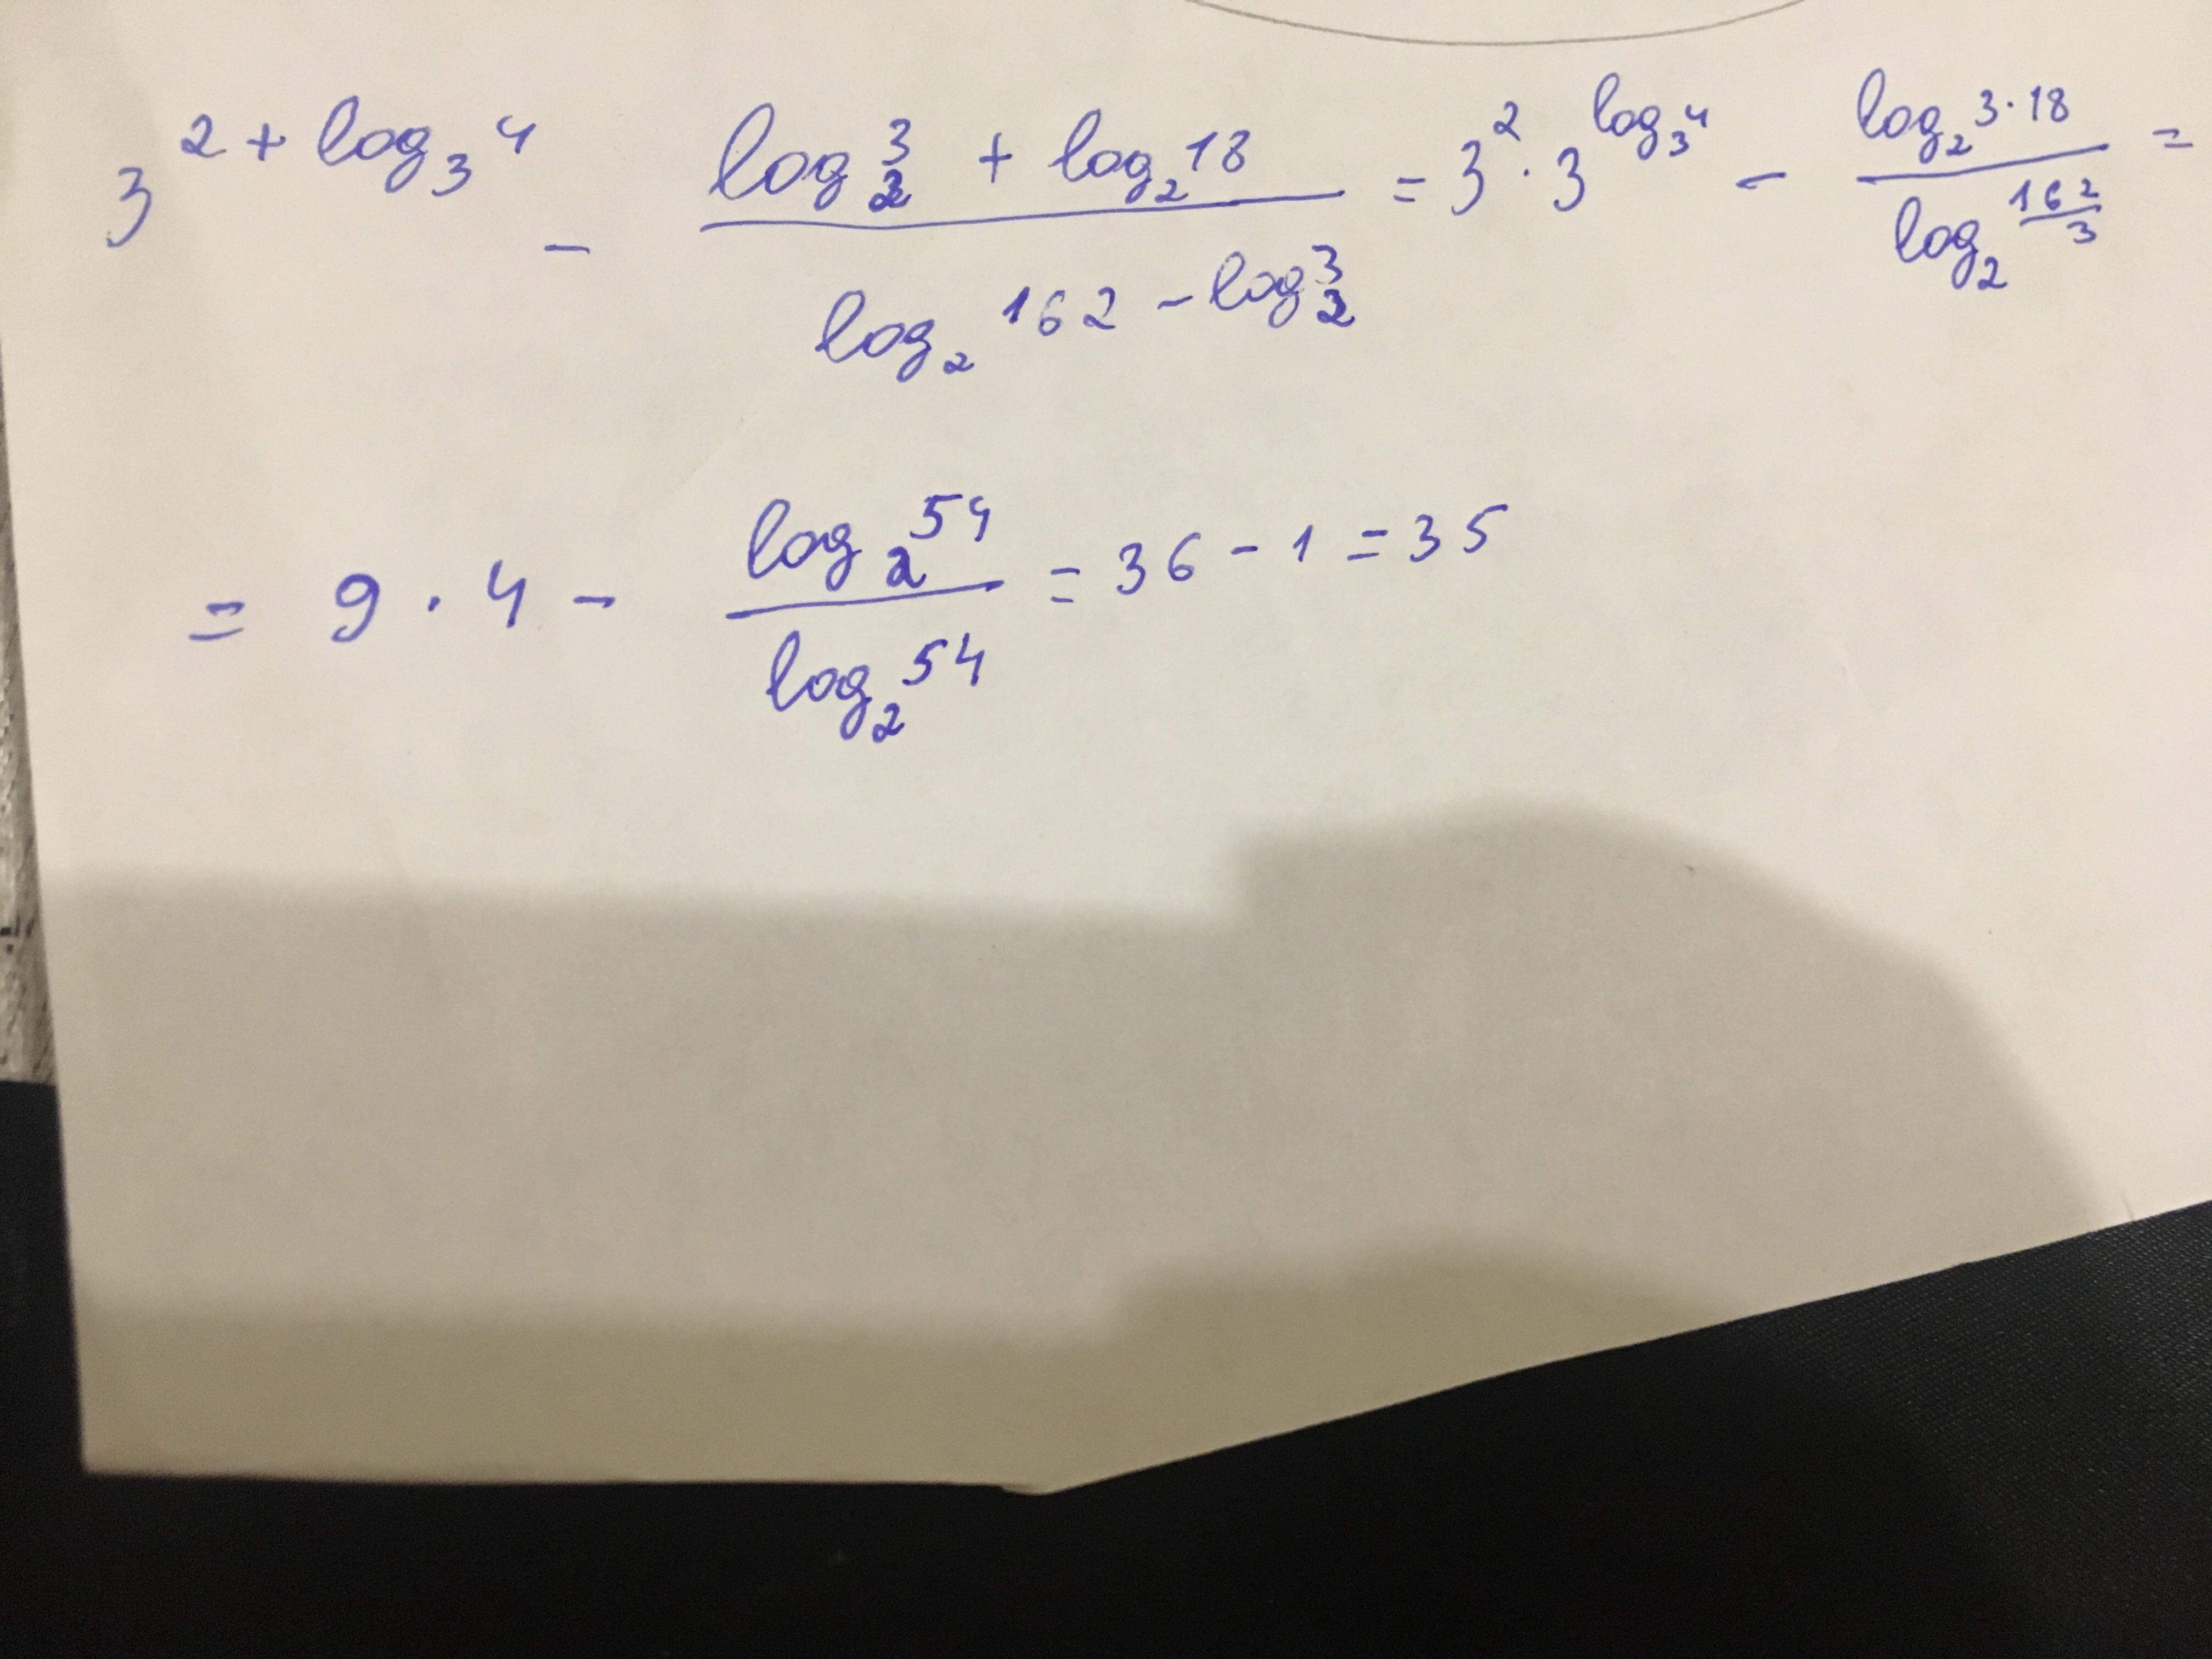 3^{2 + log_3 4} - \frac{log_2 3 + log_2 18}{log_2 162 - log_2 3} = 3^2 · 3^{log_3 4} - \frac{log_2 3·18}{log_2 \frac{162}{3}} =
= 9 · 4 - \frac{log_2 54}{log_2 54} = 36 - 1 = 35